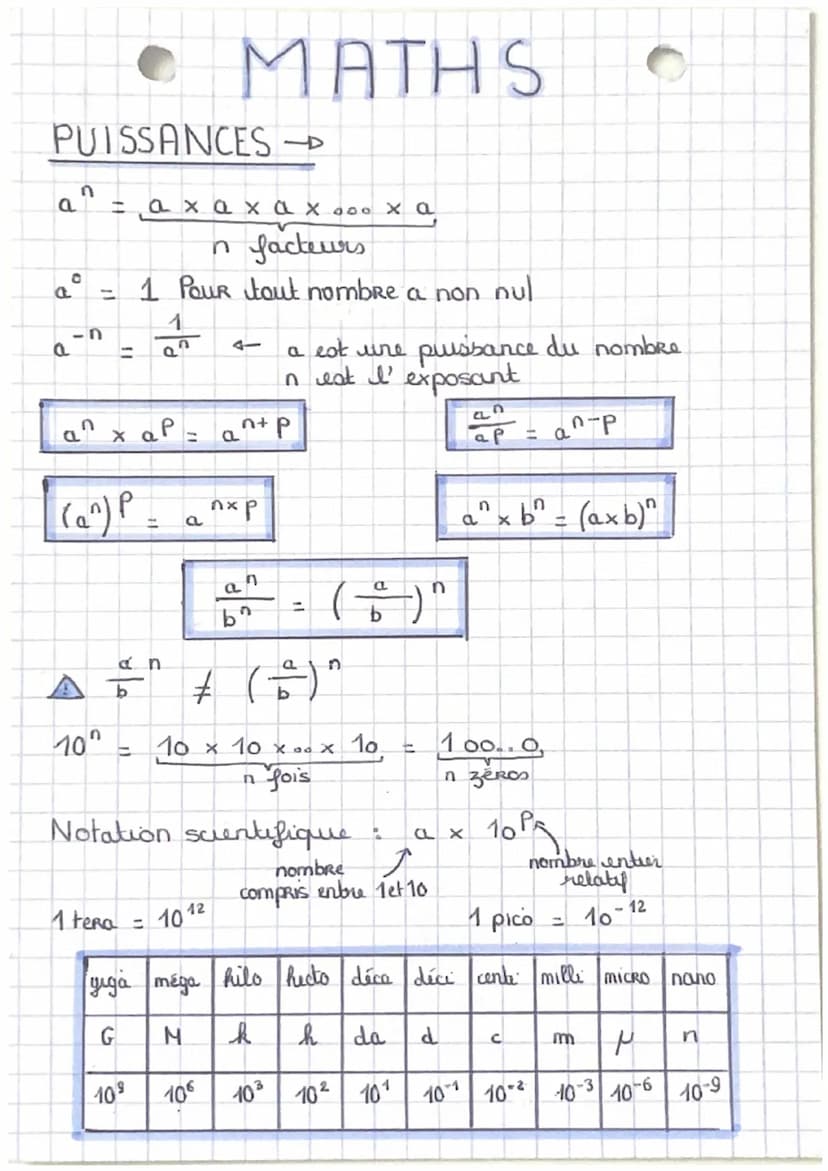 MATHS
PUISSANCES →
aⁿ = a x a x a x ... x a
n facteurs
a⁰ = 1 Pour tout nombre a non nul
a⁻ⁿ = 1/aⁿ ← a est une puissance du nombre
n est l'exposant
aⁿ x aᵖ = aⁿ⁺ᵖ
aⁿ/aᵖ = aⁿ⁻ᵖ
(aⁿ)ᵖ = aⁿˣᵖ
aⁿ x bⁿ = (axb)ⁿ
aⁿ/bⁿ = (a/b)ⁿ
⚠ aⁿ/b ≠ (a/b)ⁿ
10ⁿ = 10 x 10 x .. x 10 = 100..0
n fois n zéros
Notation scientifique : a x 10ᵖ
nombre compris entre 1 et 10
nombre entier relatif
1 tera = 10¹²
1 pico = 10⁻¹²
giga méga kilo hecto déca déci centi milli micro nano
G M k h da d c m μ n
10⁹ 10⁶ 10³ 10² 10¹ 10⁻¹ 10⁻² 10⁻³ 10⁻⁶ 10⁻⁹